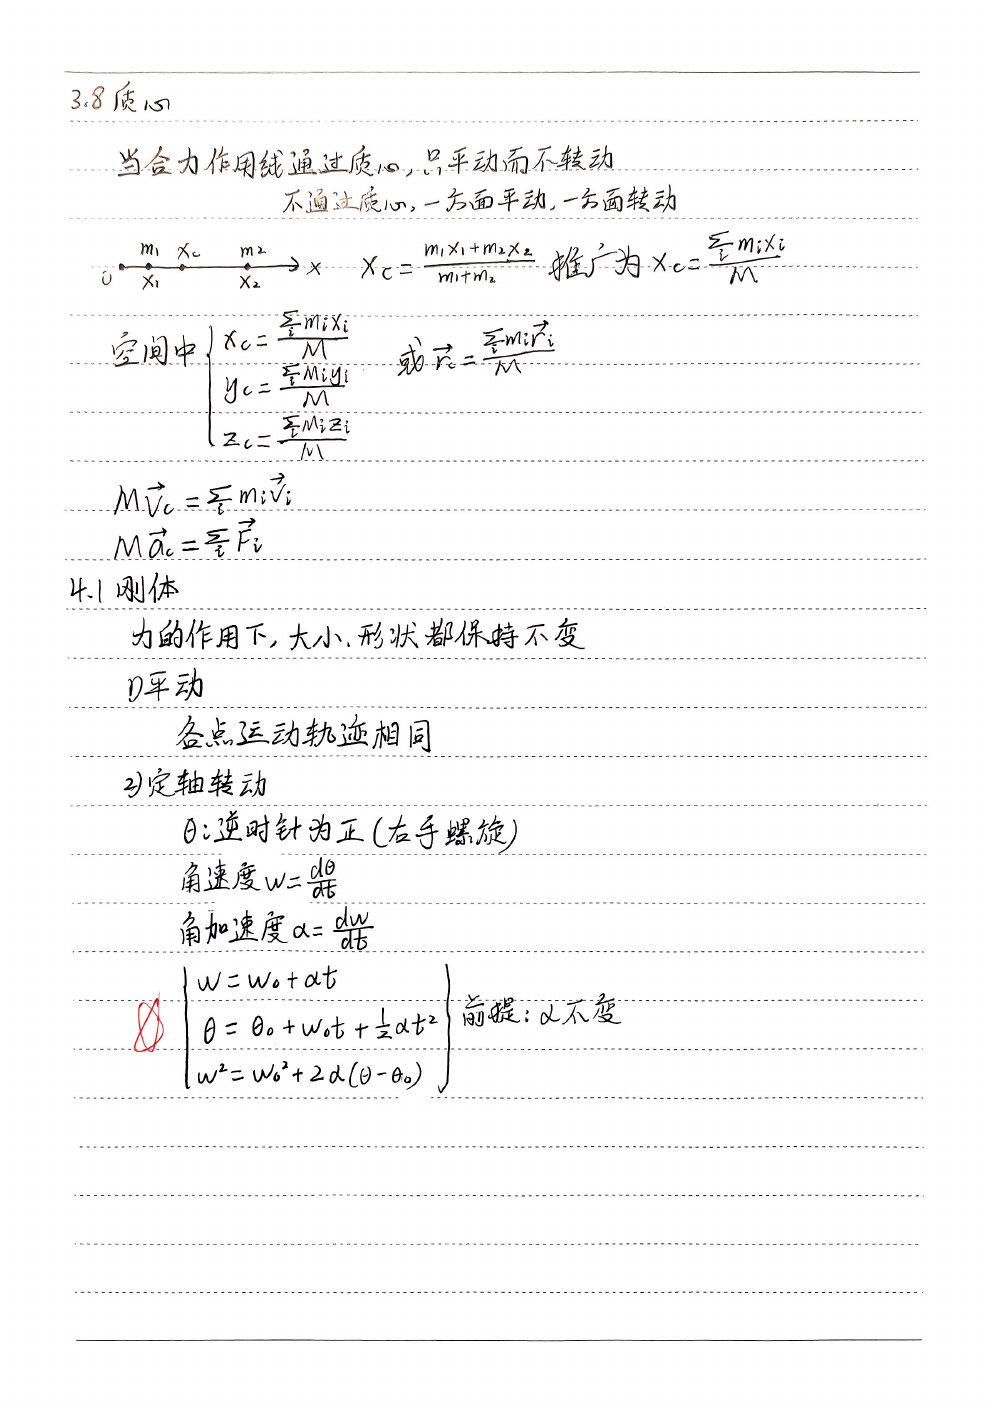 3.8 质心
当合力作用线通过质心,只平动而不转动
不通过质心,一方面平动,一方面转动
m₁ x_c m₂
0 x₁ x₂ x x_c = (m₁x₁+m₂x₂)/(m₁+m₂) 推广为 x_c = (∑_i m_i x_i)/M
空间中 { x_c = (∑_i m_i x_i)/M 或 r⃗_c = (∑_i m_i r⃗_i)/M
y_c = (∑_i m_i y_i)/M
z_c = (∑_i m_i z_i)/M
M v⃗_c = ∑_i m_i v⃗_i
M a⃗_c = ∑_i F⃗_i
4.1 刚体
力的作用下,大小、形状都保持不变
1)平动
各点运动轨迹相同
2)定轴转动
θ:逆时针为正(右手螺旋)
角速度 w = dθ/dt
角加速度 α = dw/dt
w = w₀ + αt
θ = θ₀ + w₀t + ½αt² 前提: α不变
w² = w₀² + 2α(θ - θ₀)